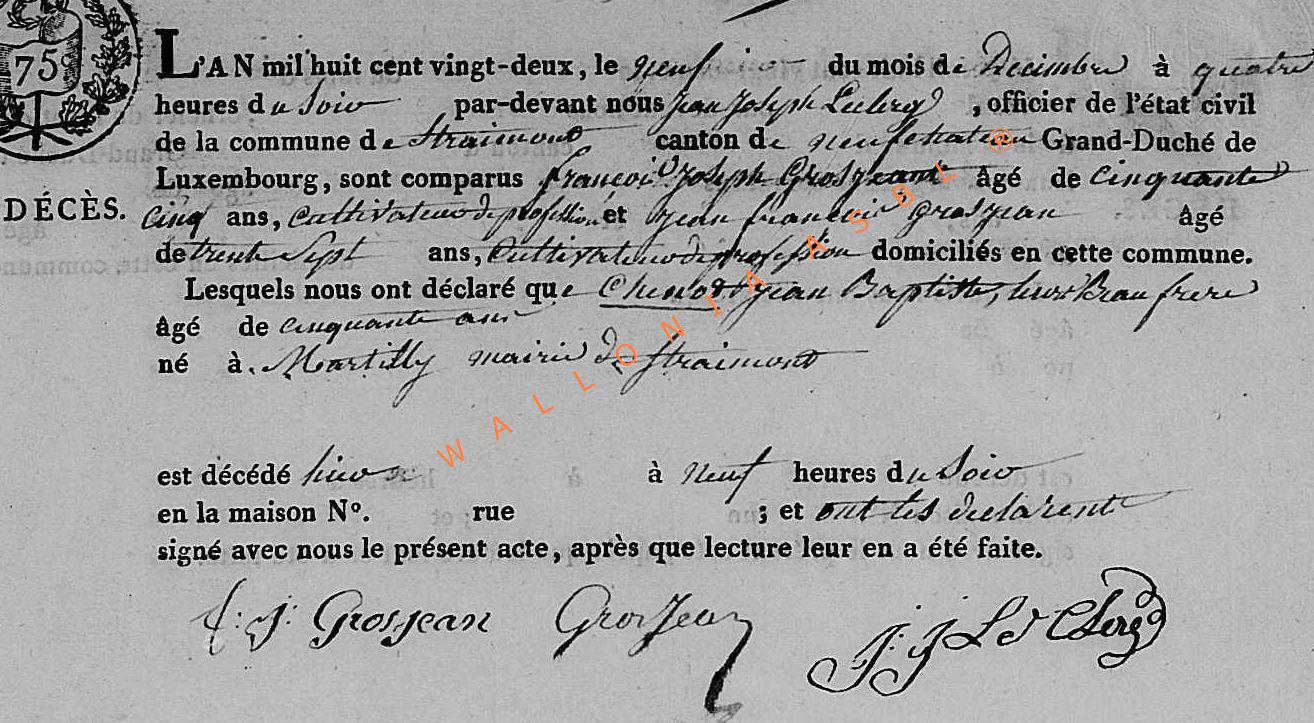 75
L'AN mil huit cent vingt-deux, le neuf du mois de Decembre à quatre
heures du Soir par-devant nous jean Joseph Leclerq, officier de l'état civil
de la commune de Straimont canton de neufchateau Grand-Duché de
Luxembourg, sont comparus francois Joseph Grosjean âgé de Cinquante
DÉCÈS.
Cinq ans, Cultivateur de profession et jean francois grosjean âgé
de trente Sept ans, Cultivateur de profession domiciliés en cette commune.
Lesquels nous ont déclaré que Chenot jean Baptiste, leur Beau frere
âgé de cinquante ans
né à Martilly mairie de Straimont
est décédé hier à neuf heures du Soir
en la maison Nº. rue ; et ont les declarents
signé avec nous le présent acte, après que lecture leur en a été faite.
f: j: Grosjean GrosJean J: J Le Clerq
WALLONIA ASBL @